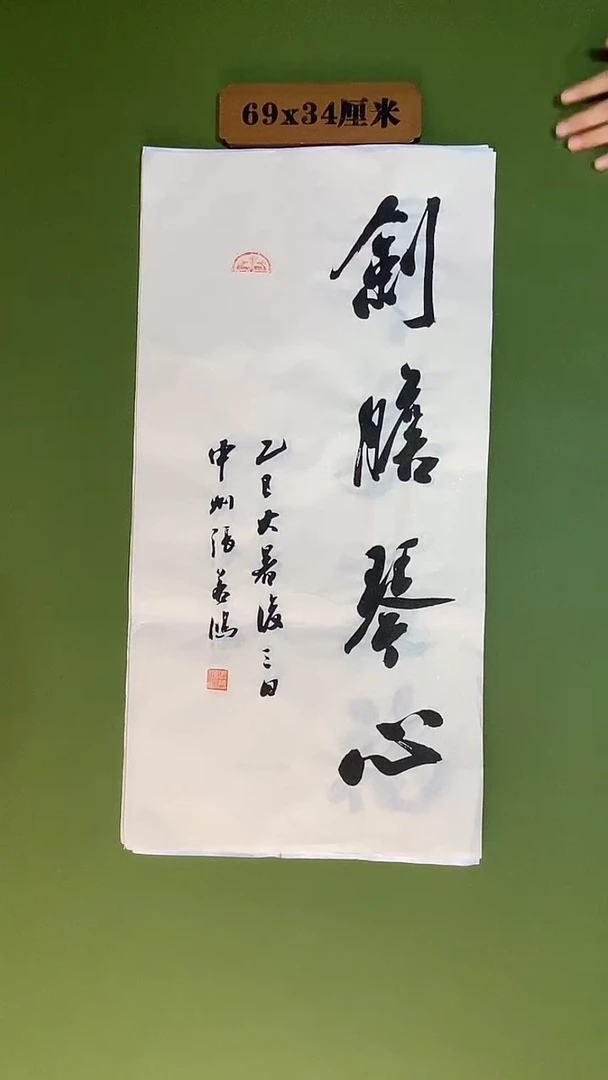 69x34厘米
劍膽琴心
乙巳大暑後三日
中州張若鴻